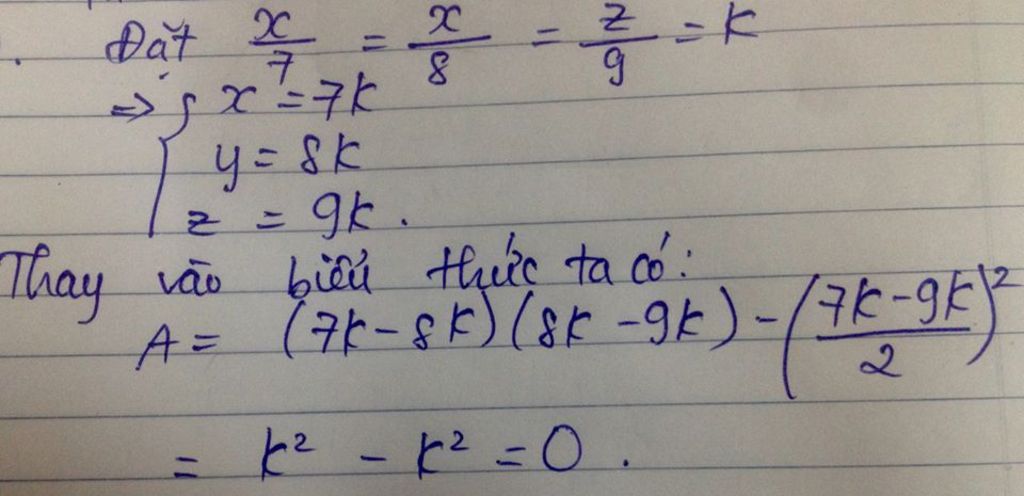 . Đặt x/7 = x/8 = z/9 = k
=> { x = 7k
y = 8k
z = 9k.
Thay vào biểu thức ta có:
A = (7k - 8k)(8k - 9k) - ((7k - 9k)/2)²
= k² - k² = 0.